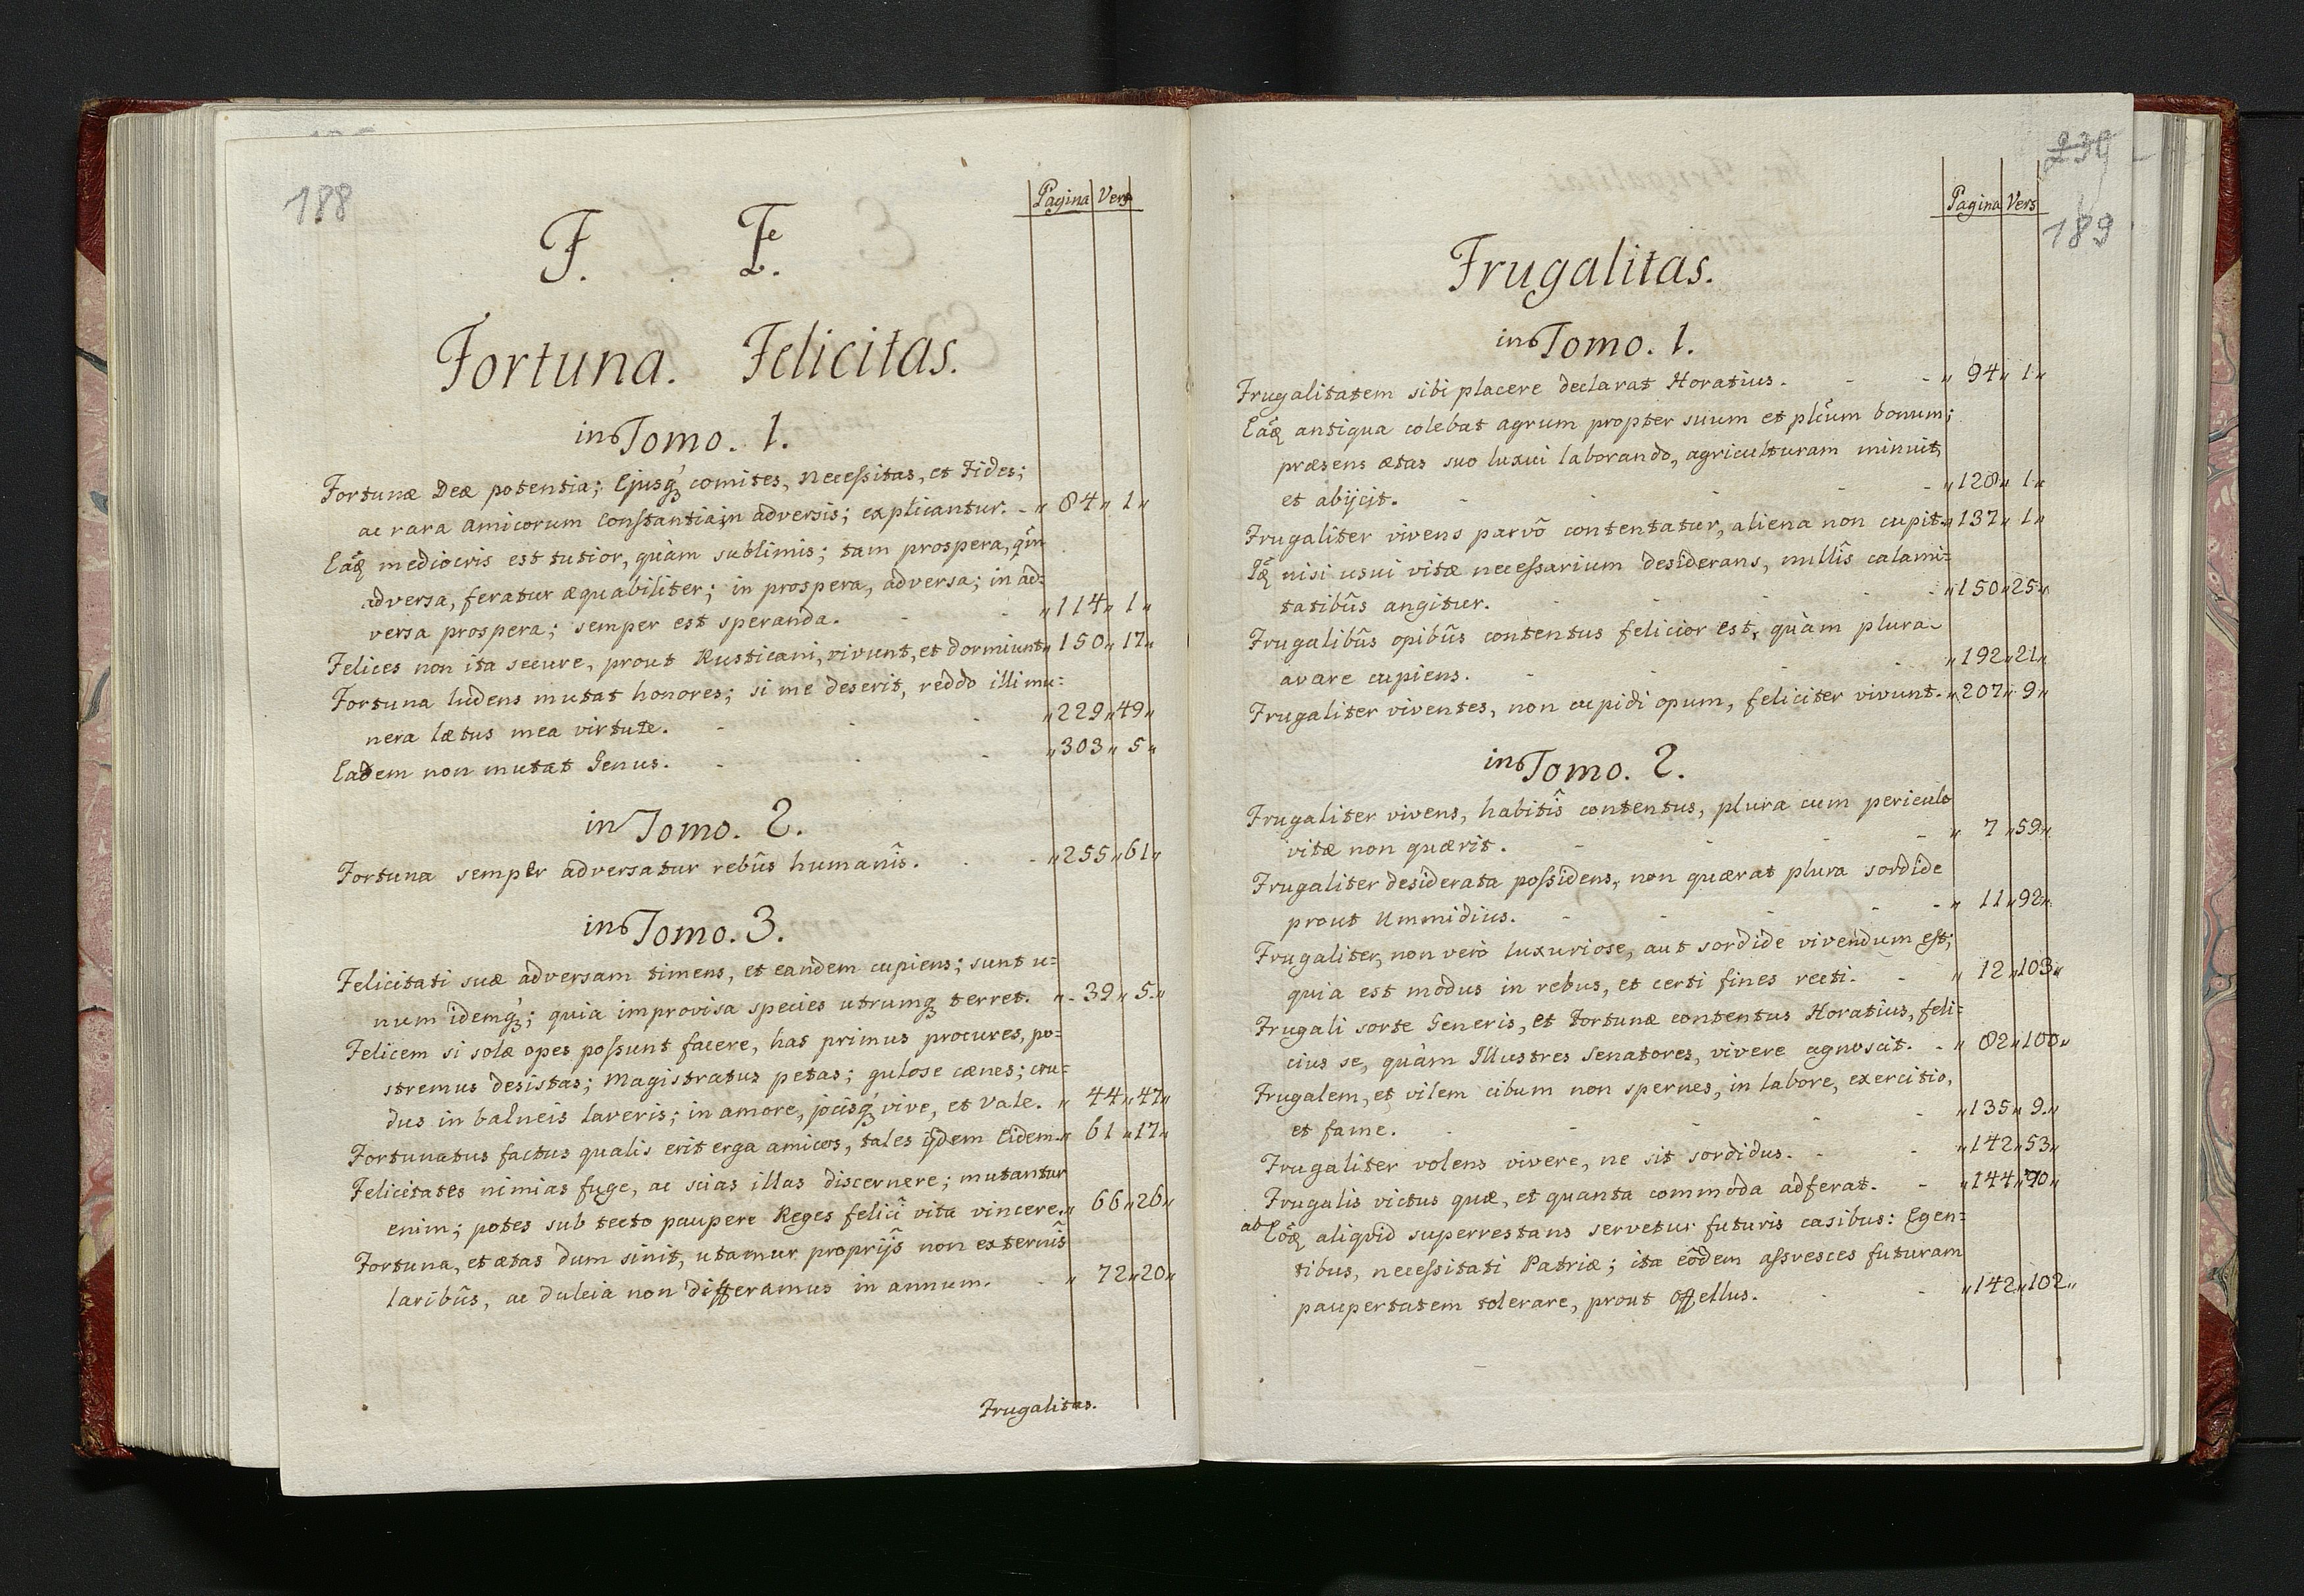 188
Pagina Vers
F. F.
Fortuna. Felicitas.
in Tomo. 1.
Fortunæ Deæ potentia; Ejusq́ꝫ comites, Necessitas, et Fides;
ac rara Amicorum Constantia in adversis; explicantur. - „ 84 „ 1 „
mediocris est tutior, quàm sublimis; tam prospera, qm̃
adversa, feratur æquabiliter; in prospera, adversa; in ad=
versa prospera; semper est speranda. - - „ 114 „ 1 „
Felices non ita secure, prout Rusticani, vivunt, et dormiunt „ 150 „ 17 „
Fortuna ludens mutat honores; si me deserit, reddo illi mu=
nera lætus mea virtute. - - - „ 229 „ 49 „
Eadem non mutat Genus. - - - „ 303 „ 5 „
in Tomo. 2.
Fortuna semper adversatur rebûs humanîs. - - „ 255 „ 61 „
in Tomo. 3.
Felicitati suæ adversam timens, et eandem cupiens; sunt u=
num idemq́ꝫ; quia improvisa species utrumqꝫ terret. „ 39 „ 5 „
Felicem si solæ opes possunt facere, has primus procures, po=
stremus desistas; Magistratus petas; gulose cænes; cru=
dus in balneis laveris; in amore, jocisq́ꝫ vive, et Vale. „ 44 „ 47 „
Fortunatus factus qualis erit erga amicos, tales ijdem Eidem. „ 61 „ 17 „
Felicitates nimias fuge, ac scias illas discernere; mutantur
enim; potes sub tecto paupere Reges felicî vita vincere. „ 66 „ 26 „
Fortuna, et ætas dum sinit, utamur proprijs̃ non externîs
laribûs, ac dulcia non differamus in annum. - „ 72 „ 20 „
Frugalitas.
239
189
Pagina Vers
Frugalitas.
in Tomo. 1.
Frugalitatem sibi placere declarat Horatius. - - „ 94 „ 1 „
antiqua colebat agrum propter suum et plcũm bonum;
præsens ætas suo luxui laborando, agriculturam minuit,
et abijcit. - - - - - „ 128 „ 1 „
Frugaliter vivens parvô contentatur, aliena non cupit. „ 137 „ 1 „
nisi usui vitæ necessarium desiderans, nullîs calami=
tatibûs angitur. - - - - - „ 150 „ 25 „
Frugalibûs opibûs contentus felicior est, quàm plura
avare cupiens. - - - - „ 192 „ 21 „
Frugaliter viventes, non cupidi opum, feliciter vivunt. „ 207 „ 9 „
in Tomo. 2.
Frugaliter vivens, habitîs contentus, plura cum periculo
vitæ non quærit. - - - - „ 7 „ 59 „
Frugaliter desiderata possidens, non quærat plura sordide
prout Ummidius. - - - - - „ 11 „ 92 „
Frugaliter, non verò luxuriose, aut sordide vivendum est;
quia est modus in rebus, et certi fines recti. - - „ 12 „ 103 „
Frugali sorte Generis, et Fortunæ contentus Horatius, feli=
cius se, quàm Illustres Senatores, vivere agnoscit. - „ 82 „ 100 „
Frugalem, et vilem cibum non spernes, in labore, exercitio,
et fame. - - - - - „ 135 „ 9 „
Frugaliter volens vivere, ne sit sordidus. - - „ 142 „ 53 „
Frugalis victus quæ, et quanta commoda adferat. - „ 144 „ 70 „
ab aliquid superrestans servetur futuris casibus: Egen=
tibus, necessitati Patriæ; ita eôdem assvesces futuram
paupertatem tolerare, prout Offellus. - - „ 142 „ 102 „